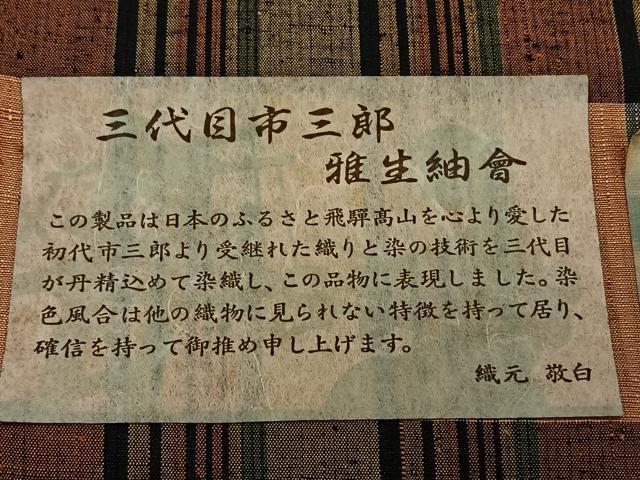 三代目市三郎
雅生紬會
この製品は日本のふるさと飛騨高山を心より愛した
初代市三郎より受継れた織りと染の技術を三代目
が丹精込めて染織し、この品物に表現しました。染
色風合は他の織物に見られない特徴を持って居り、
確信を持って御推め申し上げます。
織元 敬白